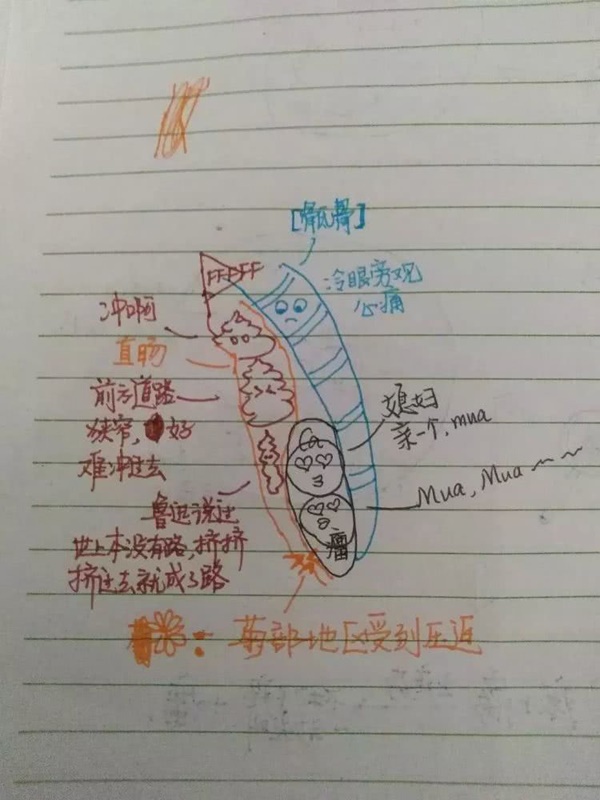 [骶尾骨]
FFFFF
冷眼旁观
心痛
冲啊
直肠
前方道路
狭窄，好
难冲过去
媳妇
亲一个，mua
Mua，Mua～～
鲁迅说过
地上本没有路，挤挤
挤过去就成了路
瘤
：菊部地区受到压迫